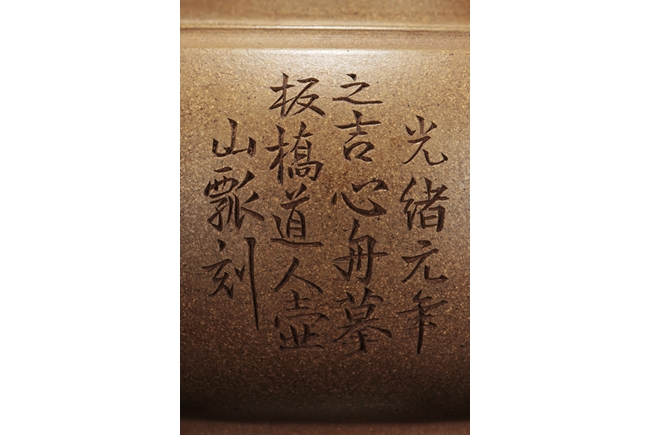 光緒元年
之吉心舟墓
板橋道人壺
山瓢刻